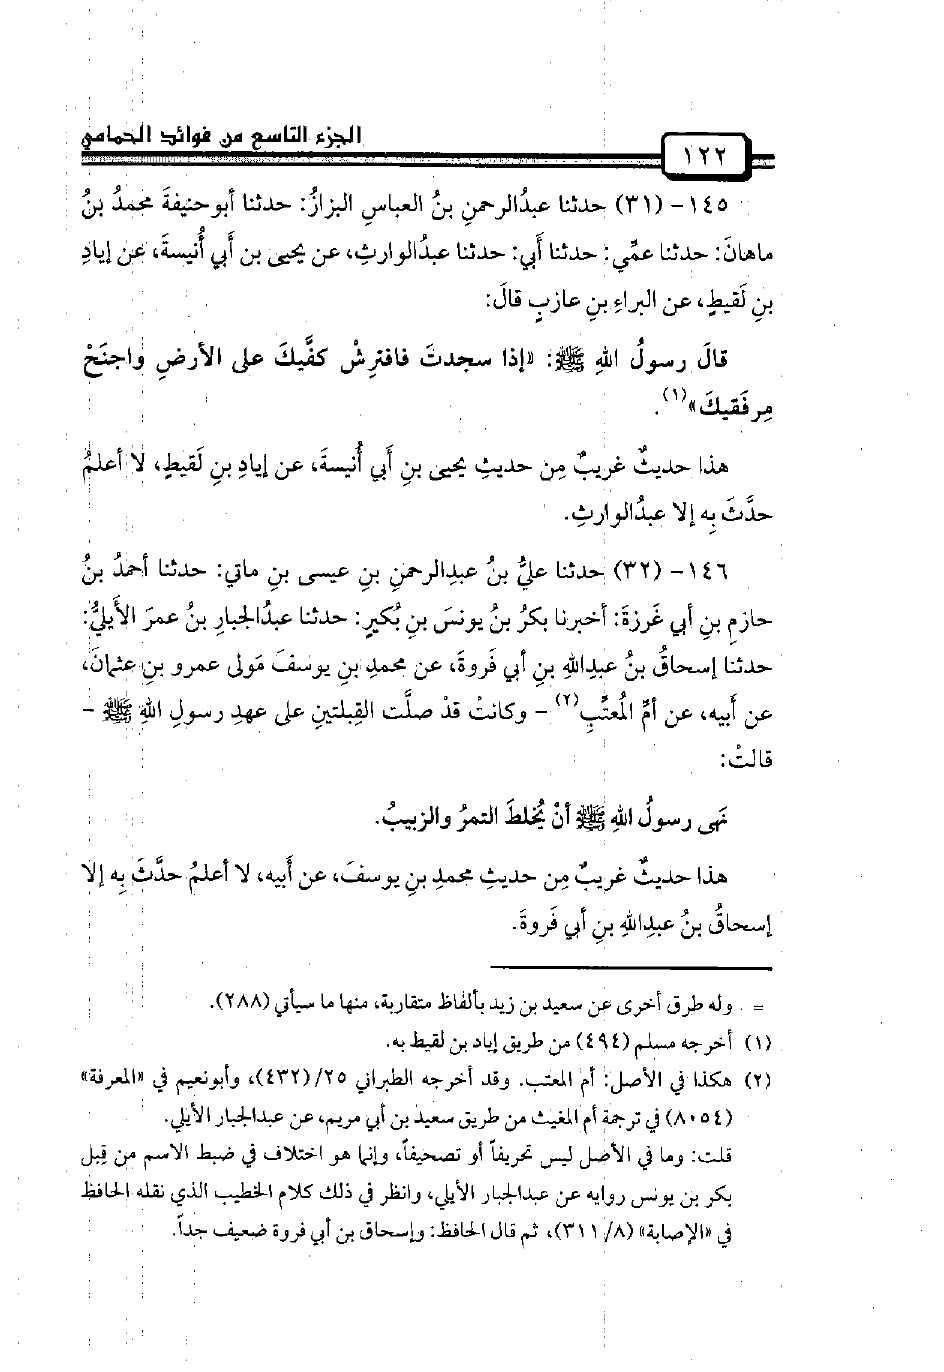 الجزء التاسع من فوائد الحمامي
١٢٢
١٤٥ - (٣١) حدثنا عبدُالرحمنِ بنُ العباسِ البزازُ: حدثنا أبوحنيفةَ محمدُ بنُ
ماهانَ: حدثنا عمِّي: حدثنا أَبي: حدثنا عبدُالوارثِ، عن يحيى بنِ أَبي أُنيسةَ، عن إيادِ
بنِ لَقيطٍ، عن البراءِ بنِ عازبٍ قالَ:
قالَ رسولُ اللهِ ﷺ: «إذا سجدتَ فافترِشْ كفَّيكَ على الأرضِ واجنَحْ
مِرفَقيكَ»(١).
هذا حديثٌ غريبٌ مِن حديثِ يحيى بنِ أَبي أُنيسةَ، عن إيادِ بنِ لَقيطٍ، لا أعلمُ
حدَّثَ بِه إلا عبدُالوارثِ.
١٤٦ - (٣٢) حدثنا عليُّ بنُ عبدِالرحمنِ بنِ عيسى بنِ ماتي: حدثنا أحمدُ بنُ
حازمِ بنِ أبي غَرزةَ: أخبرنا بكرُ بنُ يونسَ بنِ بُكيرٍ: حدثنا عبدُالجبارِ بنُ عمرَ الأَيليُّ:
حدثنا إسحاقُ بنُ عبدِاللهِ بنِ أبي فَروةَ، عن محمدِ بنِ يوسفَ مَولى عمرو بنِ عثمانَ،
عن أَبيه، عن أمِّ المُعتِّبِ(٢) - وكانتْ قدْ صلَّت القِبلتينِ على عهدِ رسولِ اللهِ ﷺ -
قالتْ:
نَهى رسولُ اللهِ ﷺ أنْ يُخلطَ التمرُ والزبيبُ.
هذا حديثٌ غريبٌ مِن حديثِ محمدِ بنِ يوسفَ، عن أَبيه، لا أعلمُ حدَّثَ بِه إلا
إسحاقُ بنُ عبدِاللهِ بنِ أَبي فَروةَ.
= وله طرق أخرى عن سعيد بن زيد بألفاظ متقاربة، منها ما سيأتي (٢٨٨).
(١) أخرجه مسلم (٤٩٤) من طريق إياد بن لقيط به.
(٢) هكذا في الأصل: أم المعتب. وقد أخرجه الطبراني ٢٥/ (٤٣٢)، وأبونعيم في «المعرفة»
(٨٠٥٤) في ترجمة أم المغيث من طريق سعيد بن أبي مريم، عن عبدالجبار الأيلي.
قلت: وما في الأصل ليس تحريفاً أو تصحيفاً، وإنما هو اختلاف في ضبط الاسم من قِبل
بكر بن يونس روايه عن عبدالجبار الأيلي، وانظر في ذلك كلام الخطيب الذي نقله الحافظ
في «الإصابة» (٨/ ٣١١)، ثم قال الحافظ: وإسحاق بن أبي فروة ضعيف جداً.